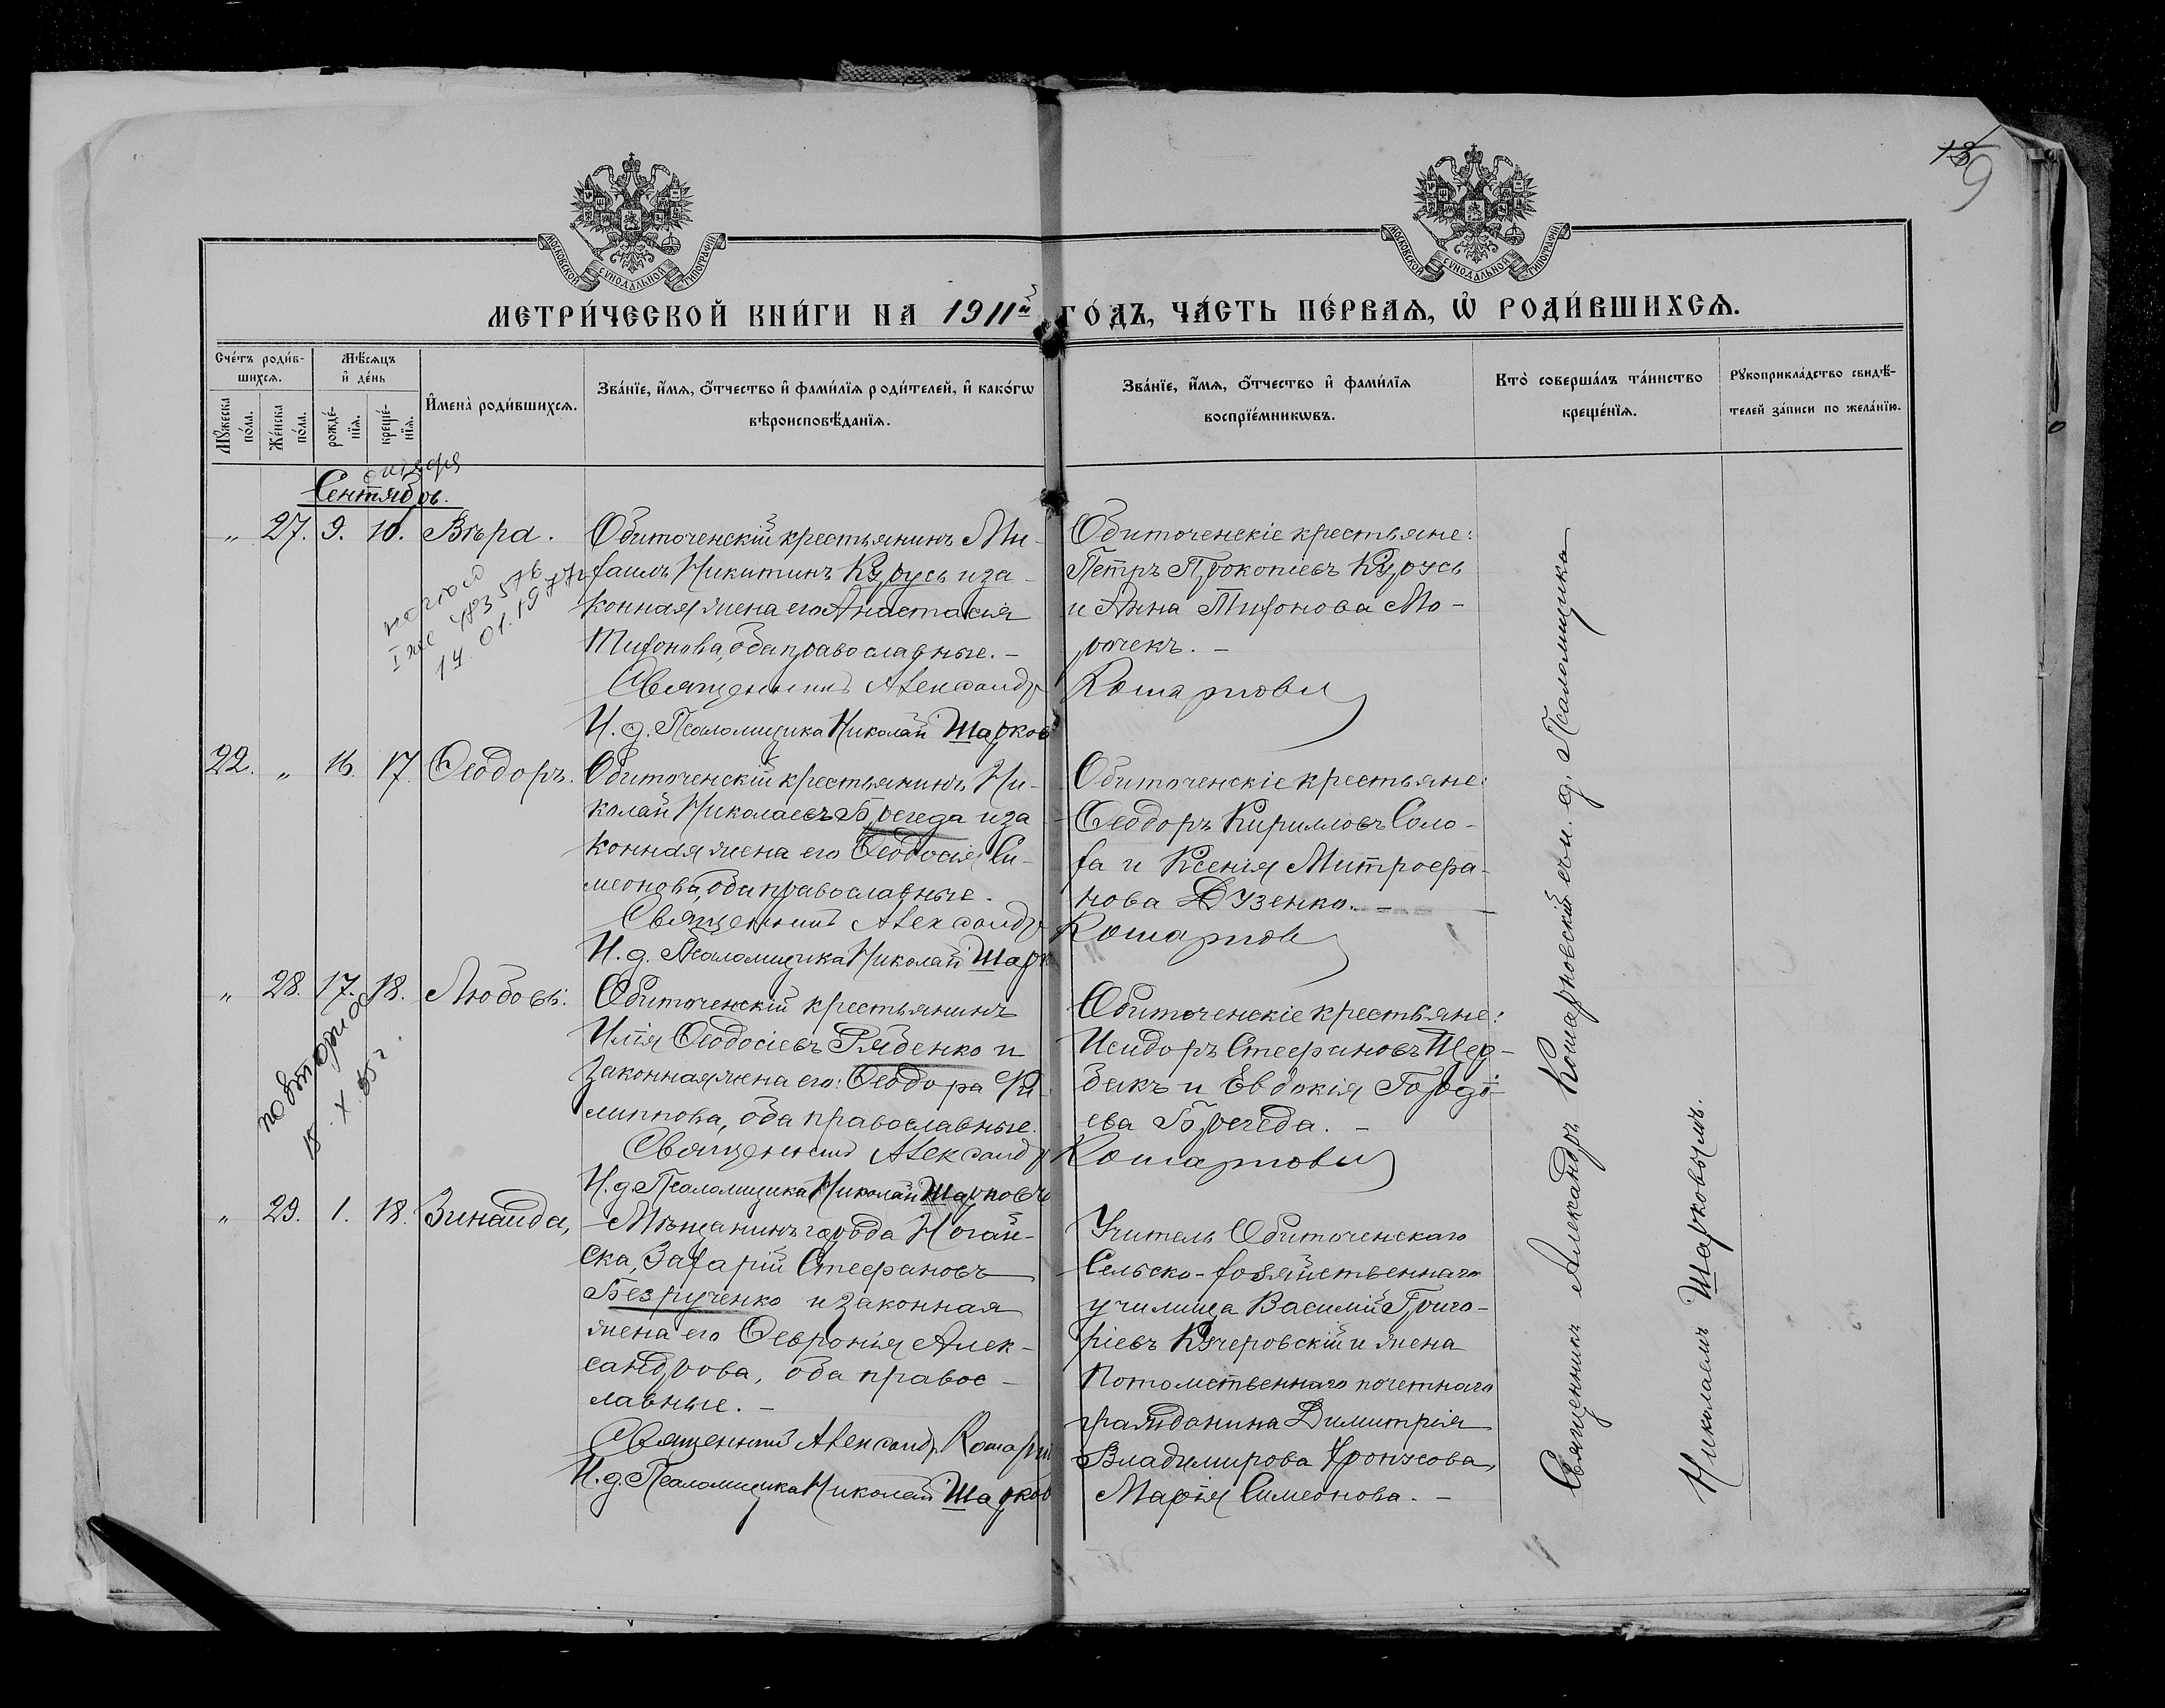 139
МОСКОВСКОЙ СѴНОДАЛЬНОЙ ТИПОГРАФІИ
МОСКОВСКОЙ СѴНОДАЛЬНОЙ ТИПОГРАФІИ
МЕТРИ́ЧЕСКОЙ КНИ́ГИ НА 1911й ГО́ДЪ, ЧА́СТЬ ПЕ́РВАѦ, Ѡ҆ РОДИ́ВШИХСѦ.
Сче́тъ роди́в-
шихсѧ.
Мѣ́сѧцъ
и҆ де́нь
Мꙋ́жеска
по́ла.
Же́нска
по́ла.
рожде́-
нїѧ.
креще́-
нїѧ.
И҆мена̀ роди́вшихсѧ.
Зва́нїе, и҆́мѧ, ѻ҆́тчество и҆ фами́лїѧ роди́телей, и҆ како́гѡ
вѣроисповѣ́данїѧ.
Зва́нїе, и҆́мѧ, ѻ҆́тчество и҆ фами́лїѧ
воспрїе́мникѡвъ.
Кто̀ соверша́лъ та́инство
креще́нїѧ.
Рꙋкоприкла́дство свидѣ́-
телей за́писи по жела́нїю.
Сентябрь.
" 27. 9. 10. Вѣра.
Обиточенскій крестьянинъ Ми-
хаилъ Никитинъ Курусь и за-
конная жена его Анастасія
Тихонова, оба православные. –
Священникъ Александръ Кошарновскій
И. д. Псаломщика Николай Шарковъ
Обиточенскіе крестьяне:
Петръ Прокопіевъ Курусь
и Анна Тихонова Мо-
рочекъ. –
14.01.19
22. " 16. 17. Ѳеодоръ.
Обиточенскій крестьянинъ Ни-
колай Николаевъ Брегеда и за
конная жена его Ѳеодосія Си-
меонова, оба православные.
Священникъ Александръ Кошарновскій
И. д. Псаломщика Николай Шарк
Обиточенскіе крестьяне:
Ѳеодоръ Кирилловъ Соло-
ха и Ксенія Митрофа-
нова Дузенко. –
" 28. 17. 18. Любовь.
повторно
18. X. 55 г.
Обиточенскій крестьянинъ
Илія Ѳеодосіевъ Рябенко и
законная жена его: Ѳеодора Фи-
липпова, оба православные.
Священникъ Александръ Кошарновскій
И. д. Псаломщика Николай Шарковъ
Обиточенскіе крестьяне:
Исидоръ Стефановъ Щер-
бакъ и Евдокія Горді-
ева Брегеда. –
" 29. 1. 18. Зинаида,
Мѣщанинъ города Ногай-
ска, Захарій Стефановъ
Безрученко и законная
жена его Ѳевронія Алек-
сандрова, оба правос-
лавные. –
Священникъ Александръ Кошарн
И. д. Псаломщика Николай Шарков
Учитель Обиточенскаго
Сельско-хозяйственнаго
училища Василій Григо-
ріевъ Кучеровскій и жена
Потомственнаго почетнаго
гражданина Димитрія
Владимирова
Марія Симеонова. –
Священникъ Александръ Кошарновскій съ и. д. Псаломщика
Николаемъ Шарковымъ.